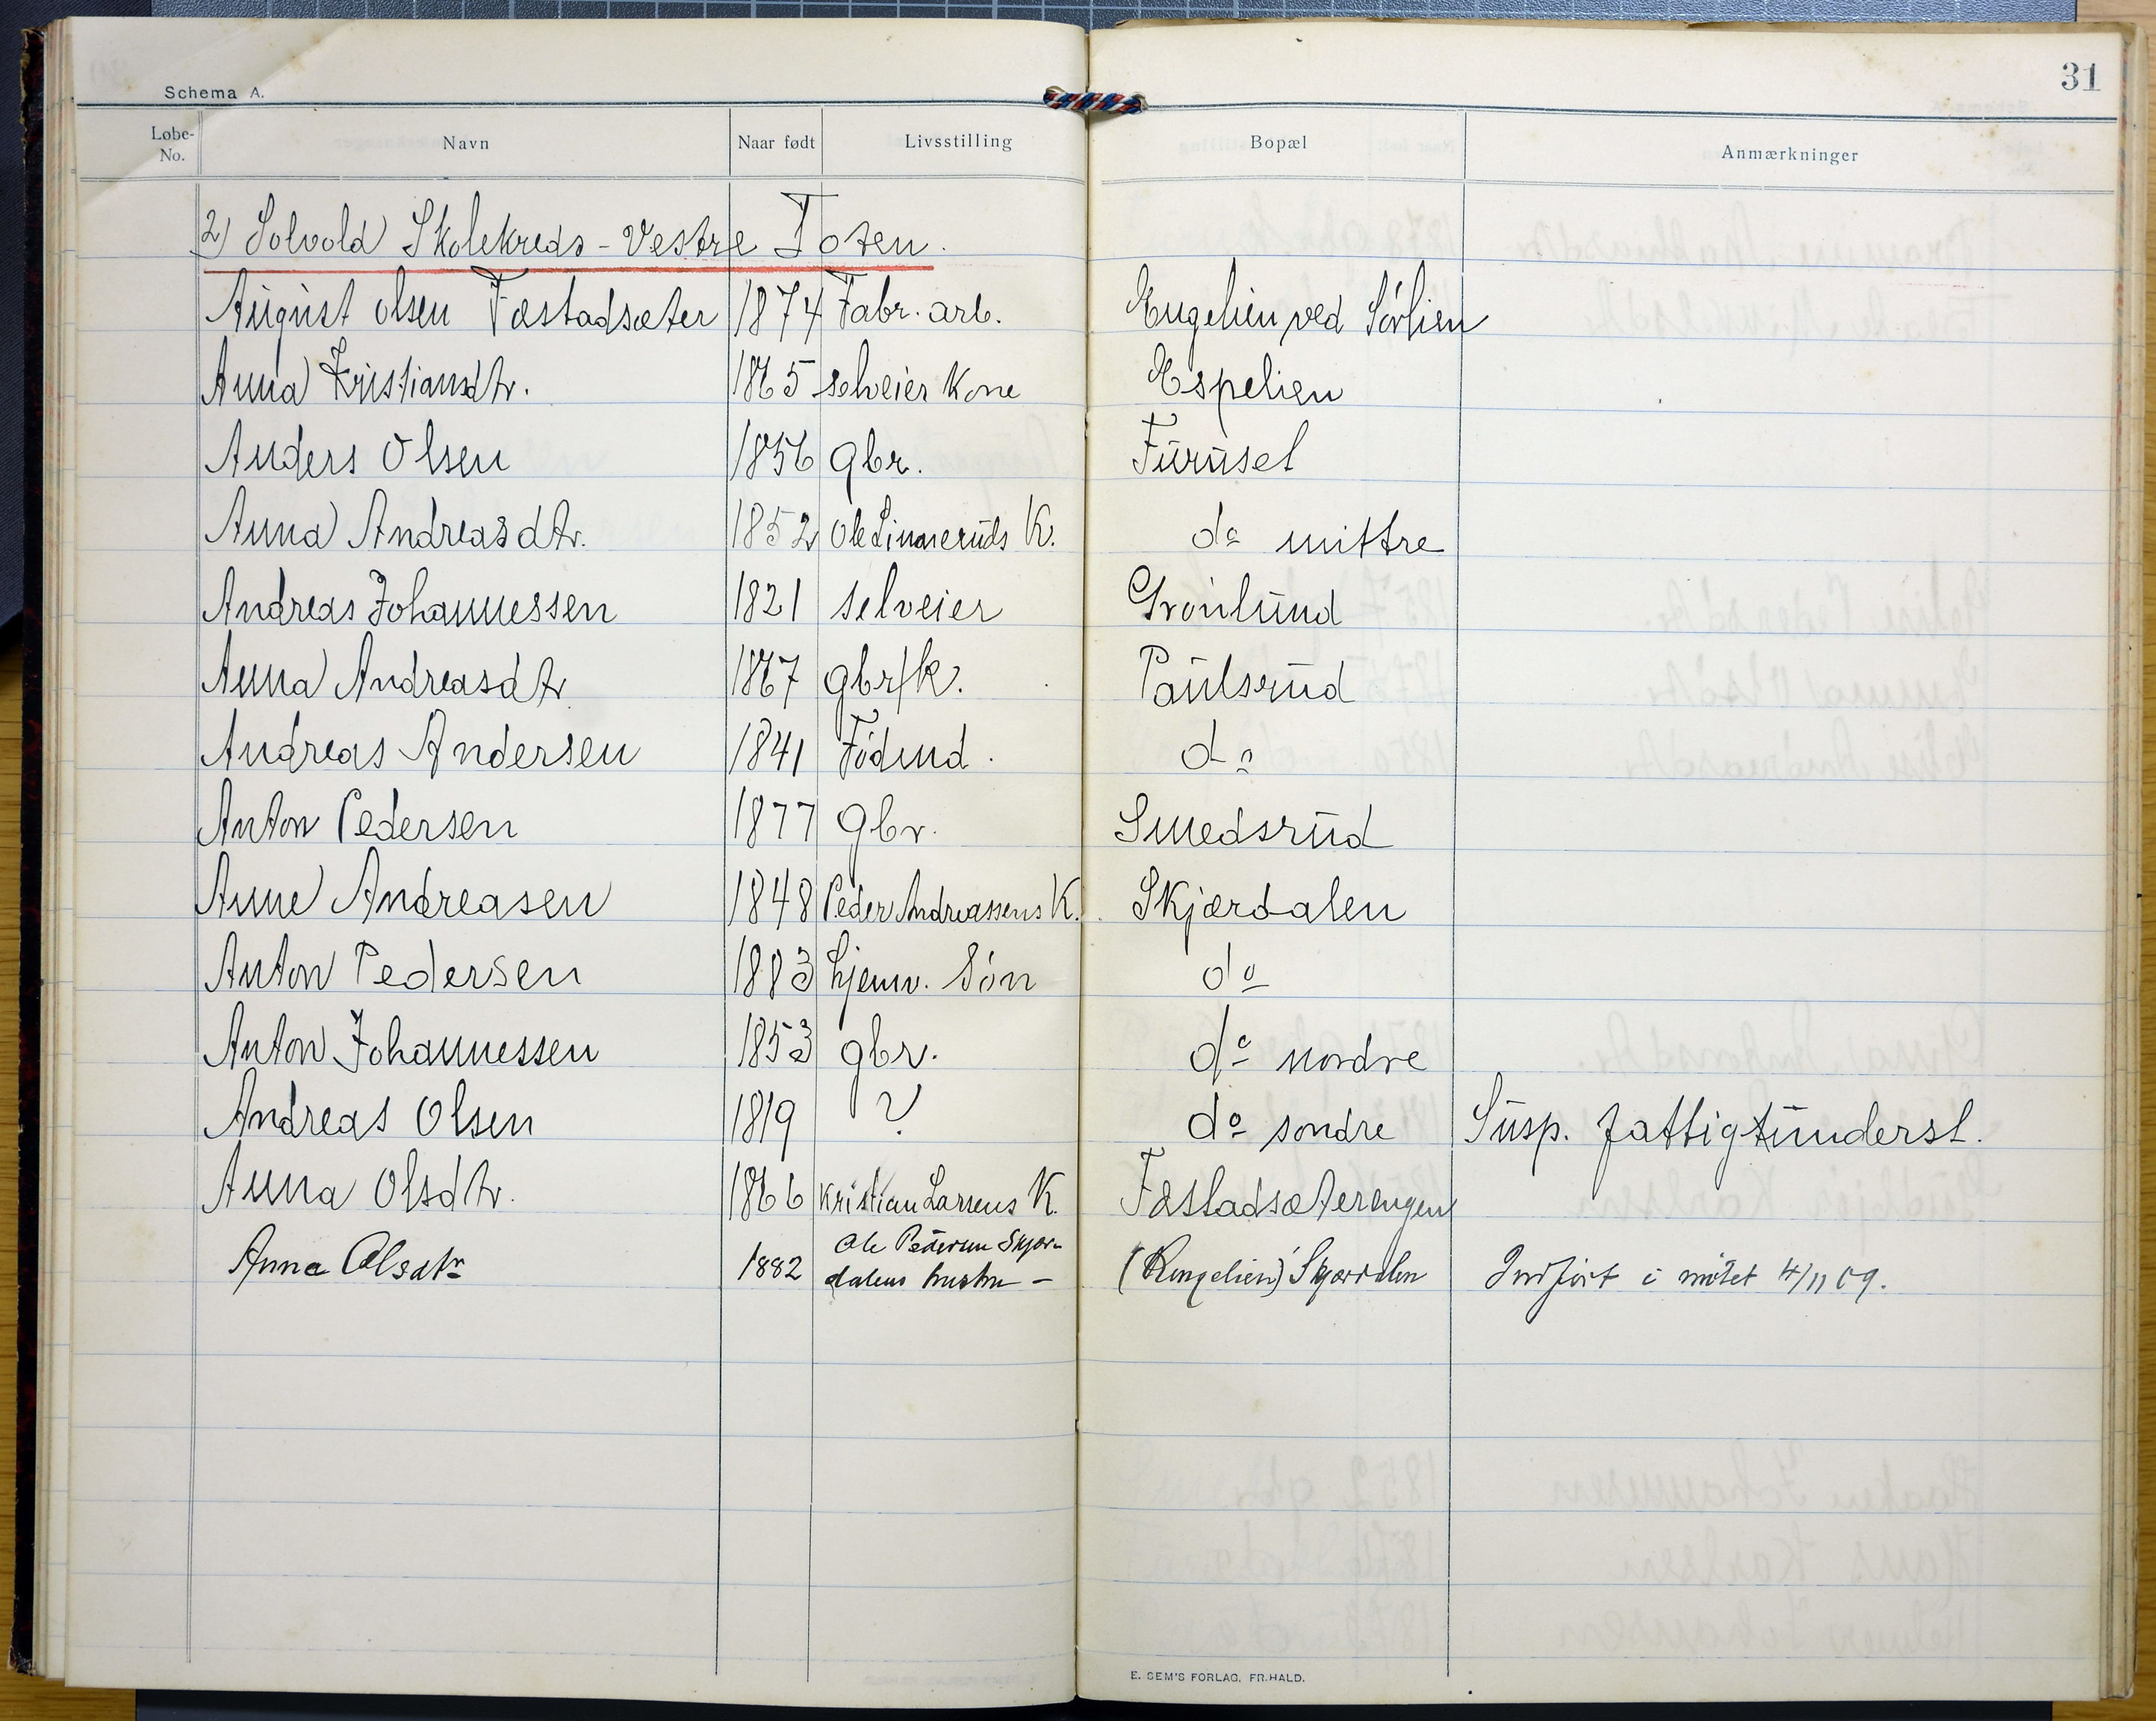 31
Schema A.
Løbe-No. Navn Naar født Livsstilling Bopæl Anmærkninger
2) Solvold Skolekreds - Vestre Toten.
August Olsen Fæstadsæter 1874 Fabr. arb. Engelien ved Sörlien
Anna Kristiansdtr. 1865 selveier Kone Espelien
Anders Olsen 1856 gbr. Furuset
Anna Andreasdtr. 1852 Ole Linneruds K. do mittre
Andreas Johannessen 1821 selveier Grönlund
Anna Andreasdtr 1867 gbr/k. Paulsrud
Andreas Andersen 1841 Födmd. do
Anton Pedersen 1877 Gbr. Smedsrud
Anne Andreasen 1848 Peder Andreassens K. Skjærdalen
Anton Pedersen 1883 hjemv. Sön do
Anton Johannessen 1853 gbr. do nordre
Andreas Olsen 1819 ? do söndre Susp. fattigtunderst.
Anna Olsdtr. 1866 Kristian Larsens K. Fæstadsæterengen
Anna Olsdtr 1882 Ole Pedersen Skjær-
dalens hustru - (Rongelien) Skjærdalen Indført i møtet 4/11 09.
E. SEM'S FORLAG, FR.HALD.